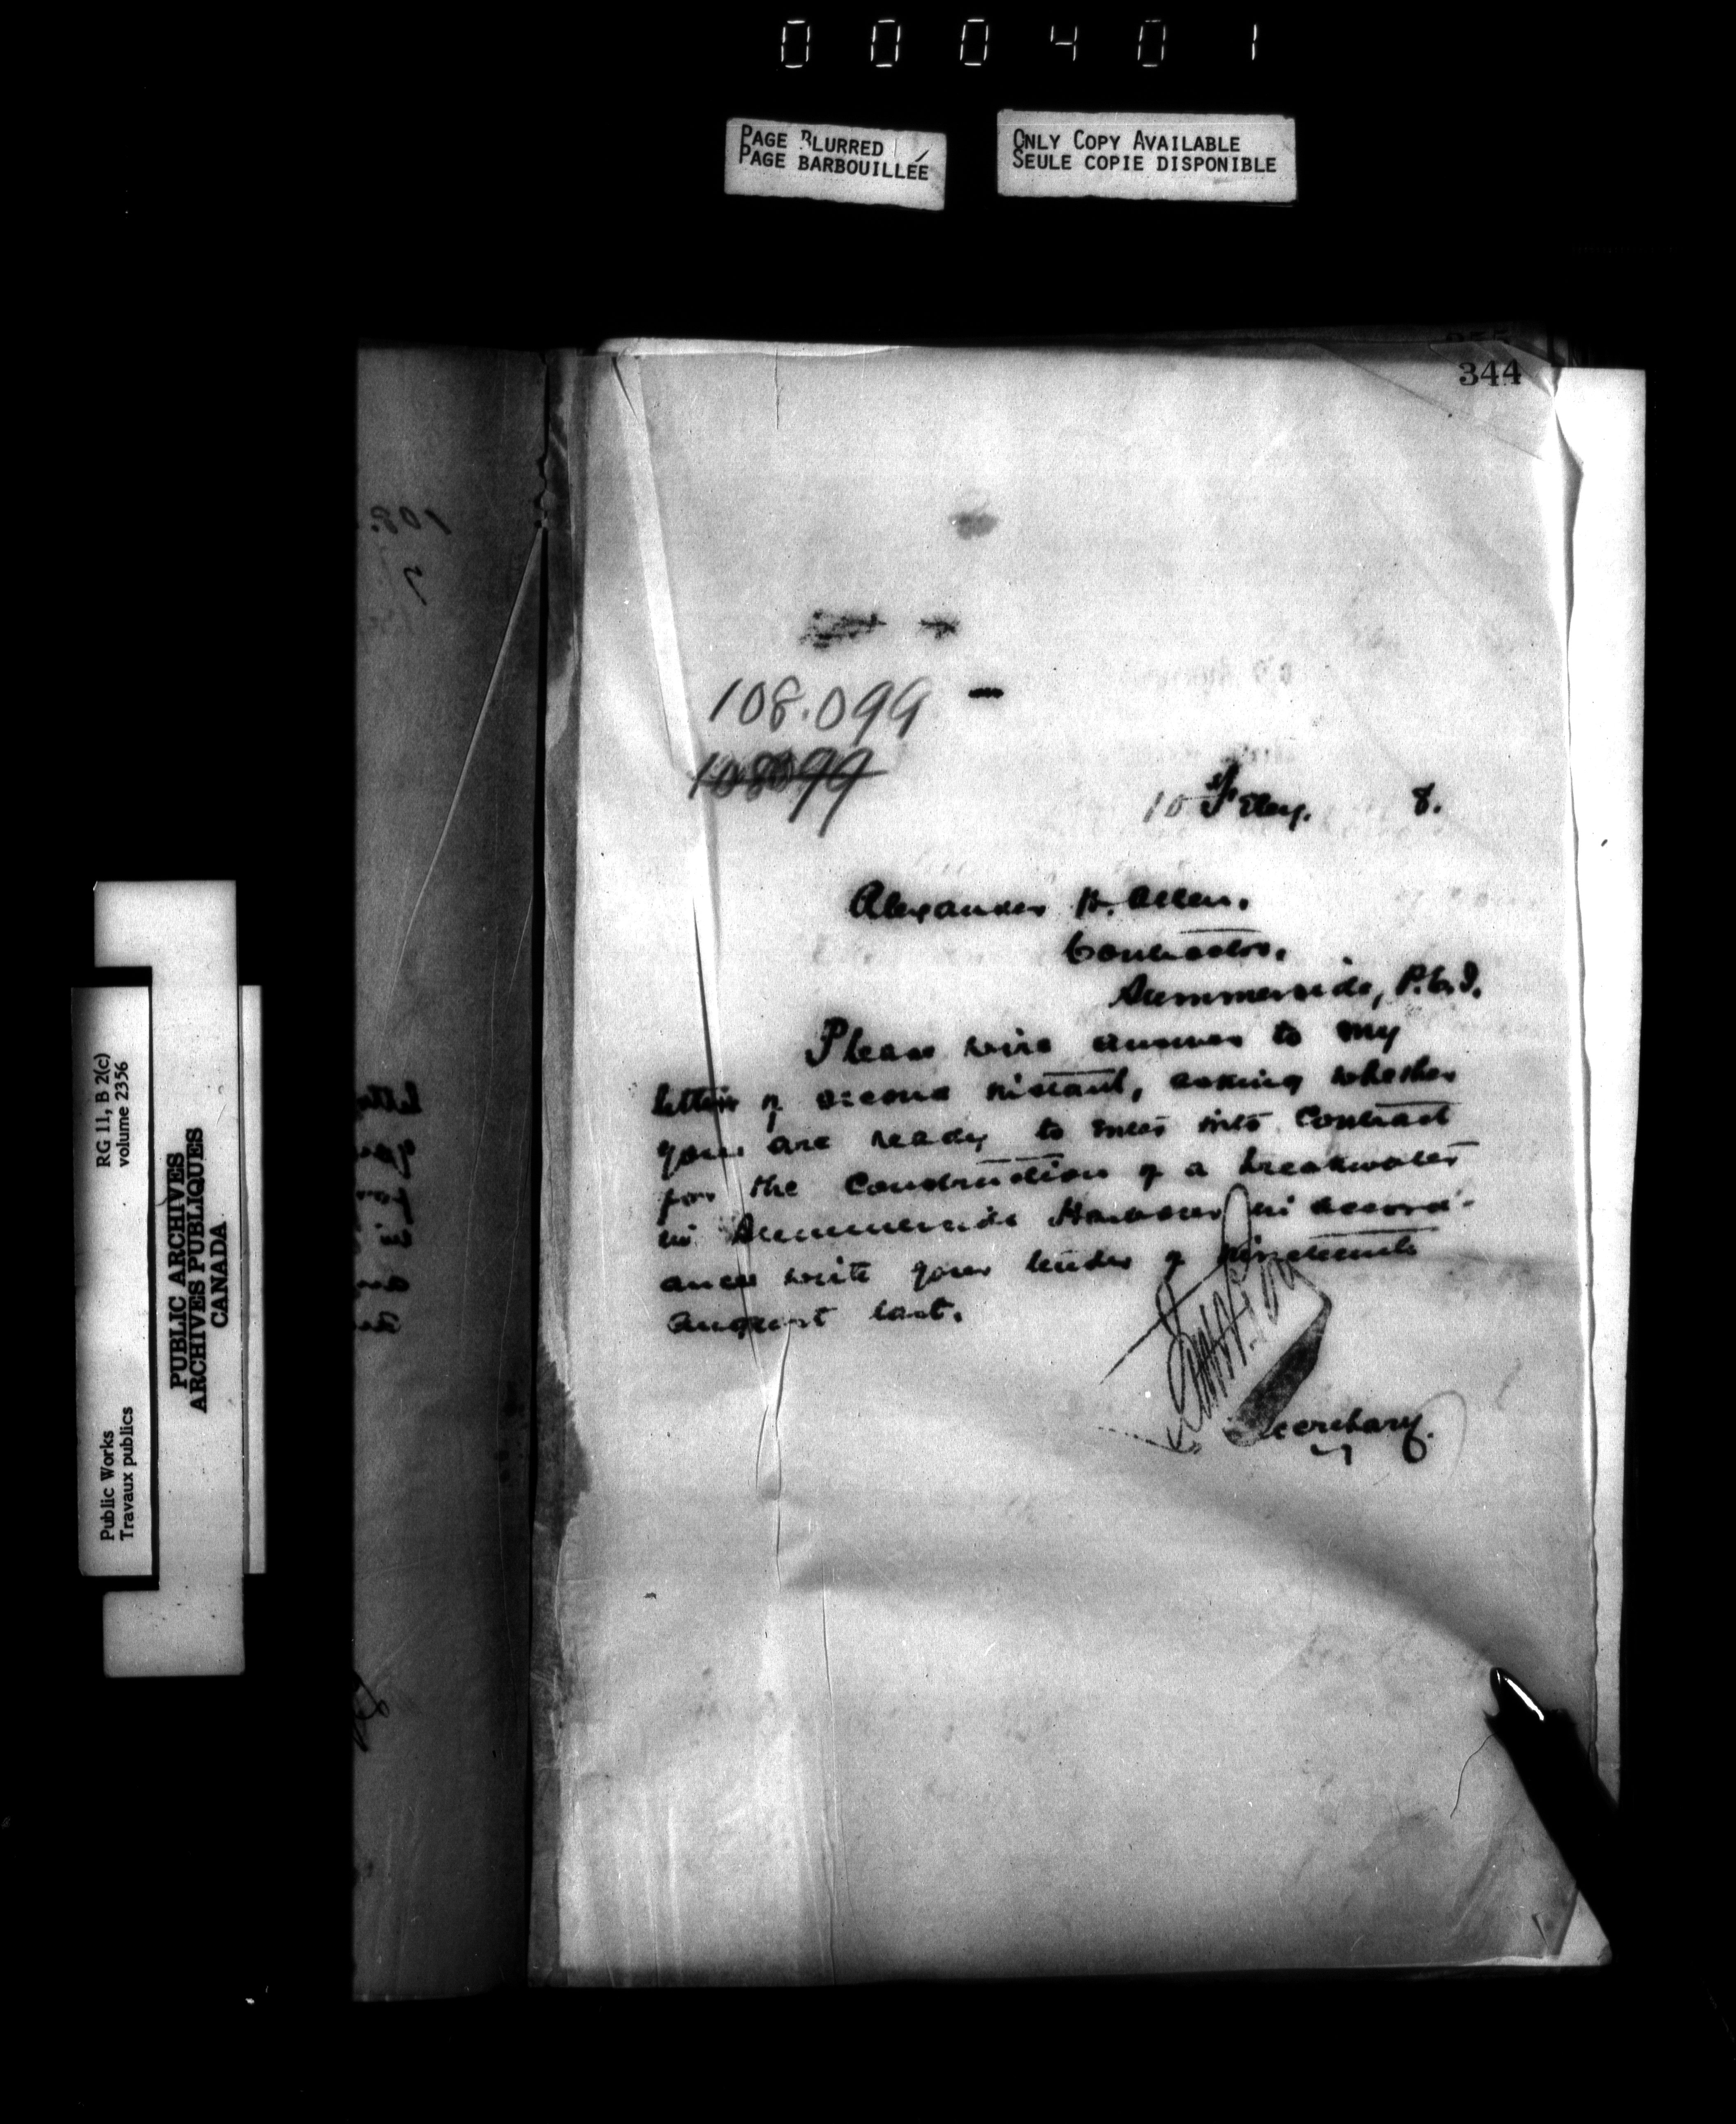 0 0 0 4 0 1
PAGE BLURRED
PAGE BARBOUILLÉE
ONLY COPY AVAILABLE
SEULE COPIE DISPONIBLE
344
108.099
108099
10 8.
Alexander B. Allen.
Contractor.
Summerside, P.E.I.
Please wire answer to my
letter of second instant, asking whether
you are ready to enter into contract
for the construction of a breakwater
in Summerside Harbour in accord-
ance with your tender of nineteenth
august last.
Secretary.
RG 11, B 2(c)
volume 2356
Public Works
Travaux publics
PUBLIC ARCHIVES
ARCHIVES PUBLIQUES
CANADA